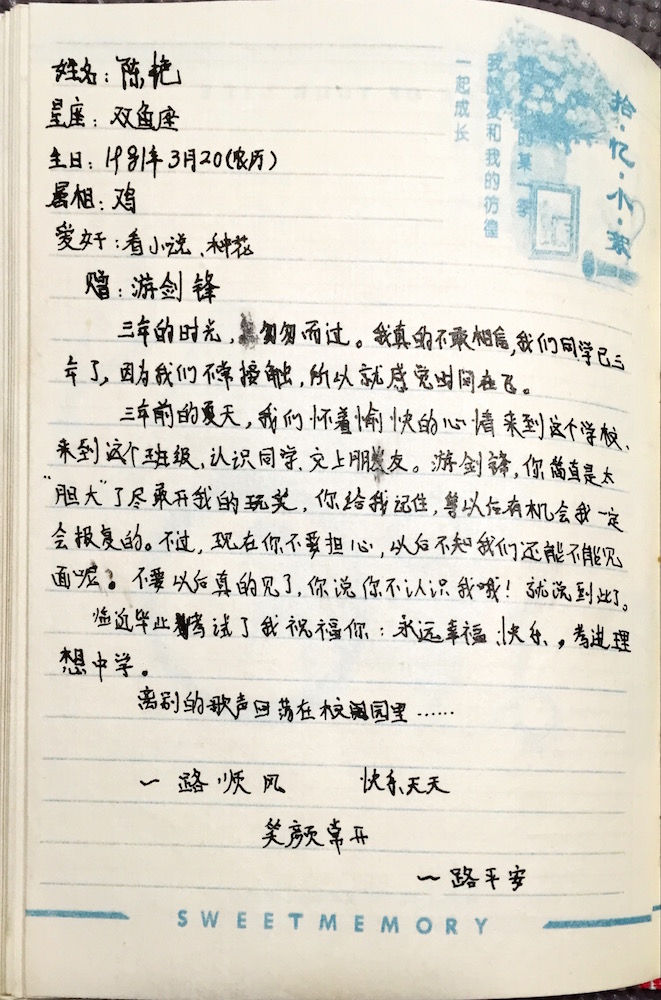 姓名：陈艳
星座：双鱼座
生日：1981年3月20(农历)
属相：鸡
爱好：看小说、种花
赠：游剑锋
三年的时光，匆匆而过。我真的不敢相信，我们同学已三
年了，因为我们不常接触，所以就感觉时间在飞。
三年前的夏天，我们怀着愉快的心情来到这个学校、
来到这个班级、认识同学、交上朋友。游剑锋，你简直是太
“胆大”了尽敢开我的玩笑，你给我记住，等以后有机会我一定
会报复的。不过，现在你不要担心，以后不知我们还能不能见
面呢。不要以后真的见了，你说你不认识我哦！就说到此了。
临近毕业考试了我祝福你：永远幸福、快乐，考进理
想中学。
离别的歌声回荡在校园里……
一路顺风 快乐天天
笑颜常开
一路平安
拾·忆·小·家
的某一季
我的爱和我的彷徨
一起成长
SWEETMEMORY